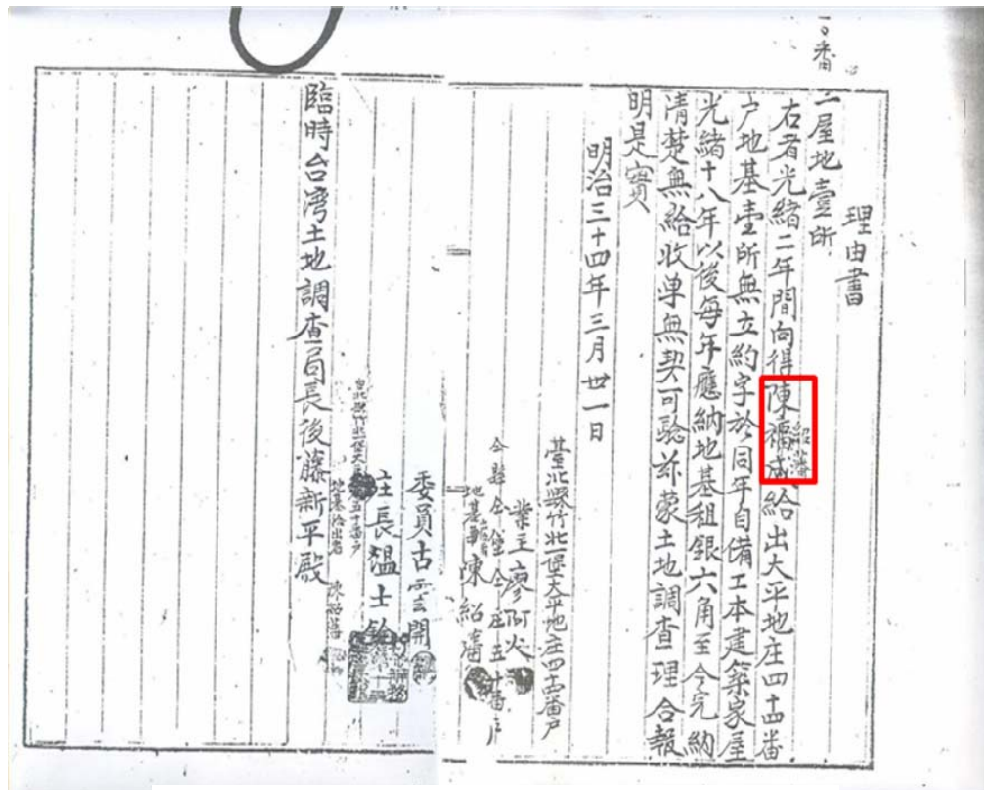 一〇番
理由書
一屋地壹所
右者光緒二年間向得陳福成給出大平地庄四十四番
紹藩
户地基壹所無立約字於同年自備工本建築家屋
光緒十八年以後每年應納地基租銀六角至今完納
清楚無給收単無契可驗茲蒙土地調查理合報
明是實
明治三十四年三月卅一日
臺北縣竹北一堡大平地庄四十四番户
業主廖阿火
仝縣仝堡仝庄五十番户
地基主陳紹藩
委員古雲開
庄長溫士
五十番户
地基給出者
陳紹藩
臨時台湾土地調查局長後藤新平殿